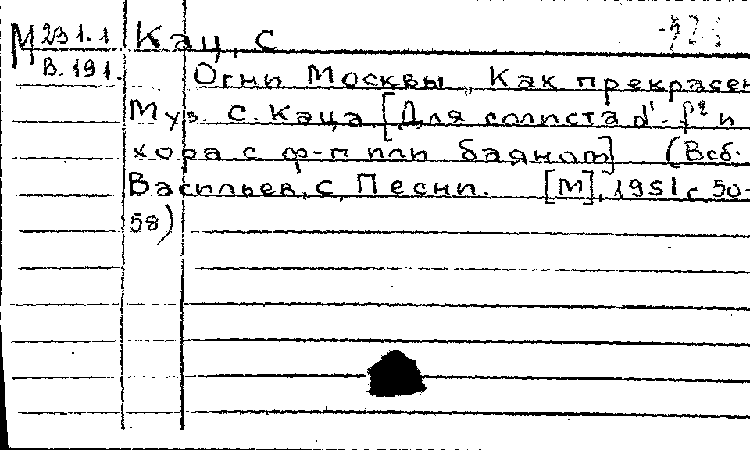 М 231.1
В.191.
Кац, С
Огни Москвы „Как прекрасен
Муз. С. Каца [Для солиста d'- f² и
хора с ф-п или баяном] (В сб.
Васильев, С, Песни. [М], 1951 с 50-
58)